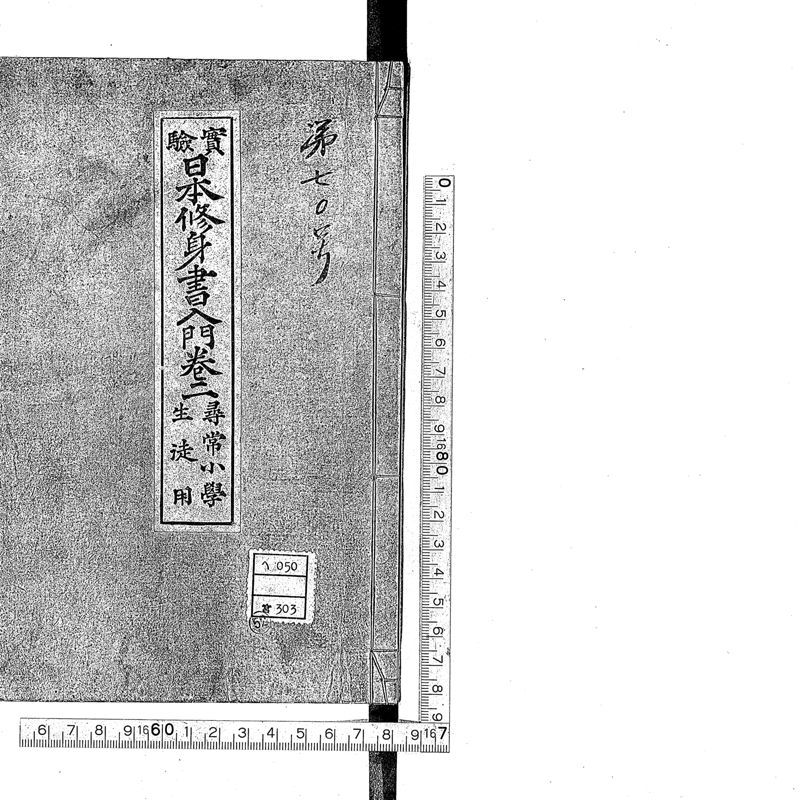 第七〇号
實驗
日本修身書入門卷二
尋常小學
生徒用
へ 050
303
0 1 2 3 4 5 6 7 8 9 16 80 1 2 3 4 5 6 7 8 9 16 7
6 7 8 9 16 60 1 2 3 4 5 6 7 8 9